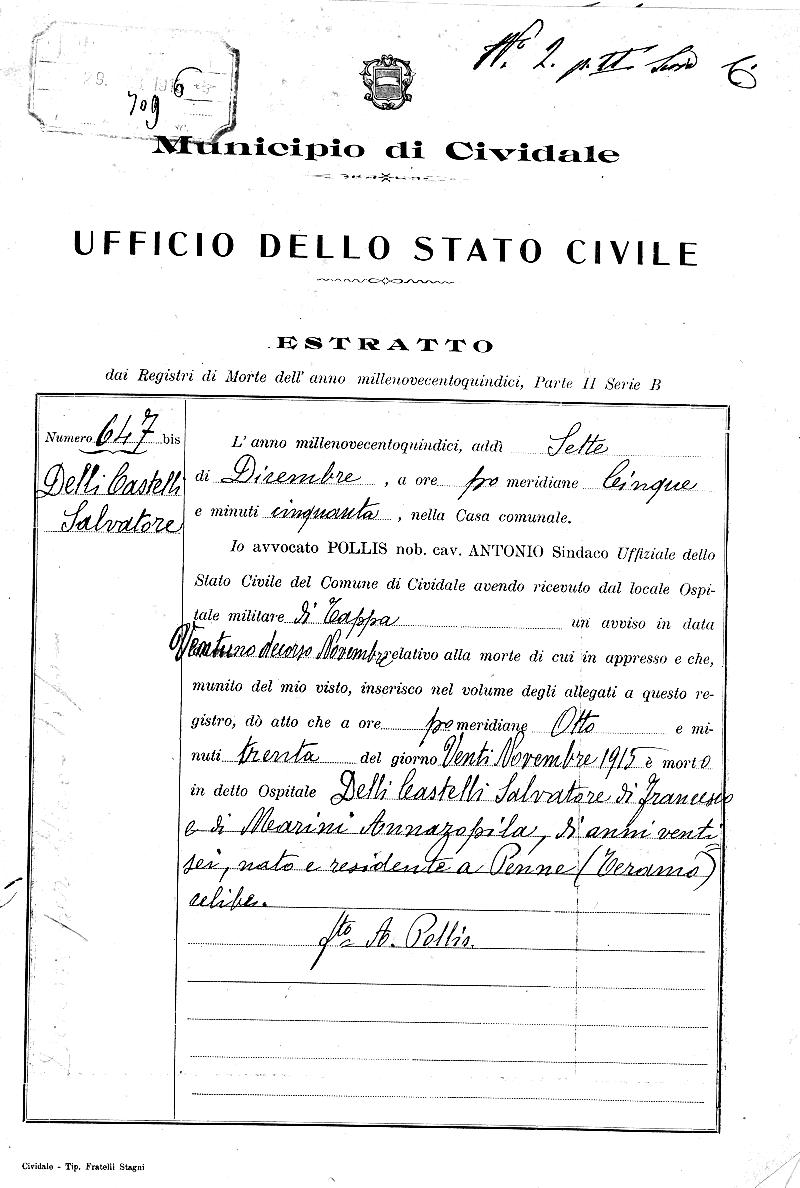 29.
709
6
N.° 2. p. II Serie C
Municipio di Cividale
UFFICIO DELLO STATO CIVILE
ESTRATTO
dai Registri di Morte dell' anno millenovecentoquindici, Parte II Serie B
Numero 647 bis
Delli Castelli
Salvatore
L' anno millenovecentoquindici, addì Sette
di Dicembre , a ore po meridiane Cinque
e minuti cinquanta , nella Casa comunale.
Io avvocato POLLIS nob. cav. ANTONIO Sindaco Uffiziale dello
Stato Civile del Comune di Cividale avendo ricevuto dal locale Ospi-
tale militare di Tappa un avviso in data
Ventuno decorso Novembre relativo alla morte di cui in appresso e che,
munito del mio visto, inserisco nel volume degli allegati a questo re-
gistro, dò atto che a ore po meridiane Otto e mi-
nuti trenta del giorno Venti Novembre 1915 è morto
in detto Ospitale Delli Castelli Salvatore di Francesco
e di Marini Annazopila, di anni venti
sei, nato e residente a Penne (Teramo)
celibe.
f.to A. Pollis.
Cividale - Tip. Fratelli Stagni